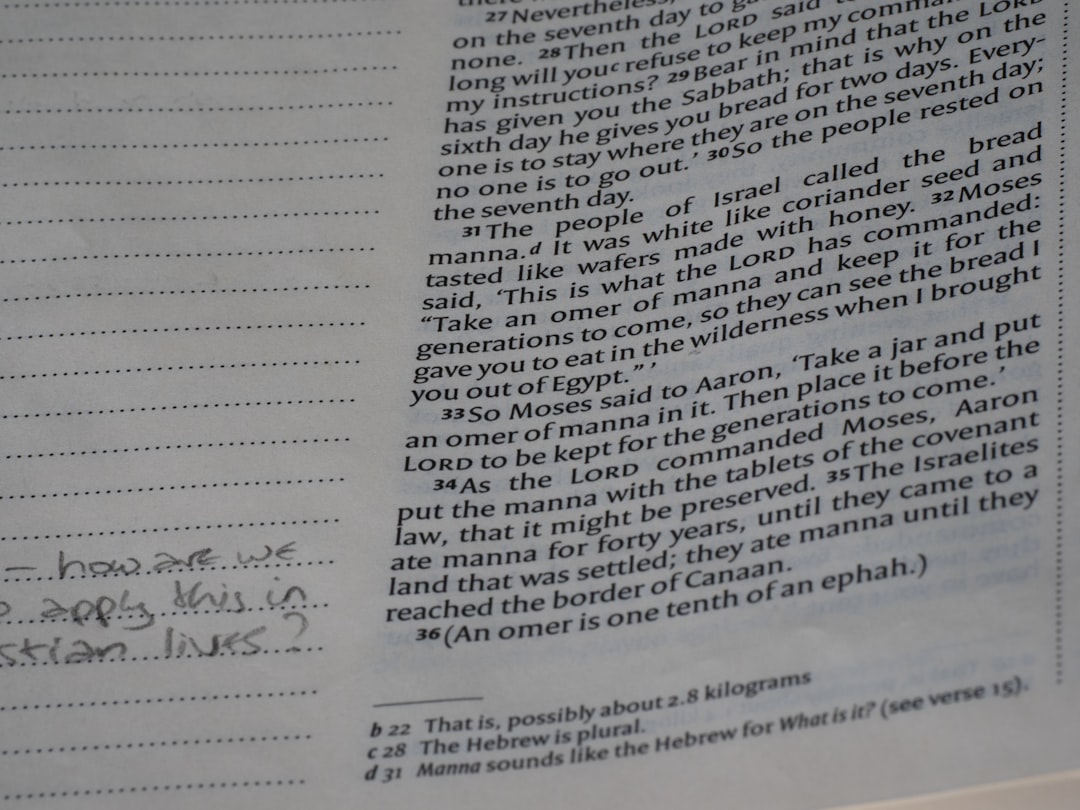 27 Nevertheless,
on the seventh day to
none. 28 Then the LORD said
long will youc refuse to keep my
my instructions? 29 Bear in mind that the LORD
has given you the Sabbath; that is why on the
sixth day he gives you bread for two days. Every-
one is to stay where they are on the seventh day;
no one is to go out.’ 30 So the people rested on
the seventh day.
31 The people of Israel called the bread
manna.d It was white like coriander seed and
tasted like wafers made with honey. 32 Moses
said, ‘This is what the LORD has commanded:
“Take an omer of manna and keep it for the
generations to come, so they can see the bread I
gave you to eat in the wilderness when I brought
you out of Egypt.” ’
33 So Moses said to Aaron, ‘Take a jar and put
an omer of manna in it. Then place it before the
LORD to be kept for the generations to come.’
34 As the LORD commanded Moses, Aaron
put the manna with the tablets of the covenant
law, that it might be preserved. 35 The Israelites
ate manna for forty years, until they came to a
land that was settled; they ate manna until they
reached the border of Canaan.
36 (An omer is one tenth of an ephah.)
b 22 That is, possibly about 2.8 kilograms
c 28 The Hebrew is plural.
d 31 Manna sounds like the Hebrew for What is it? (see verse 15).
– how are we
apply this in
stian lives?